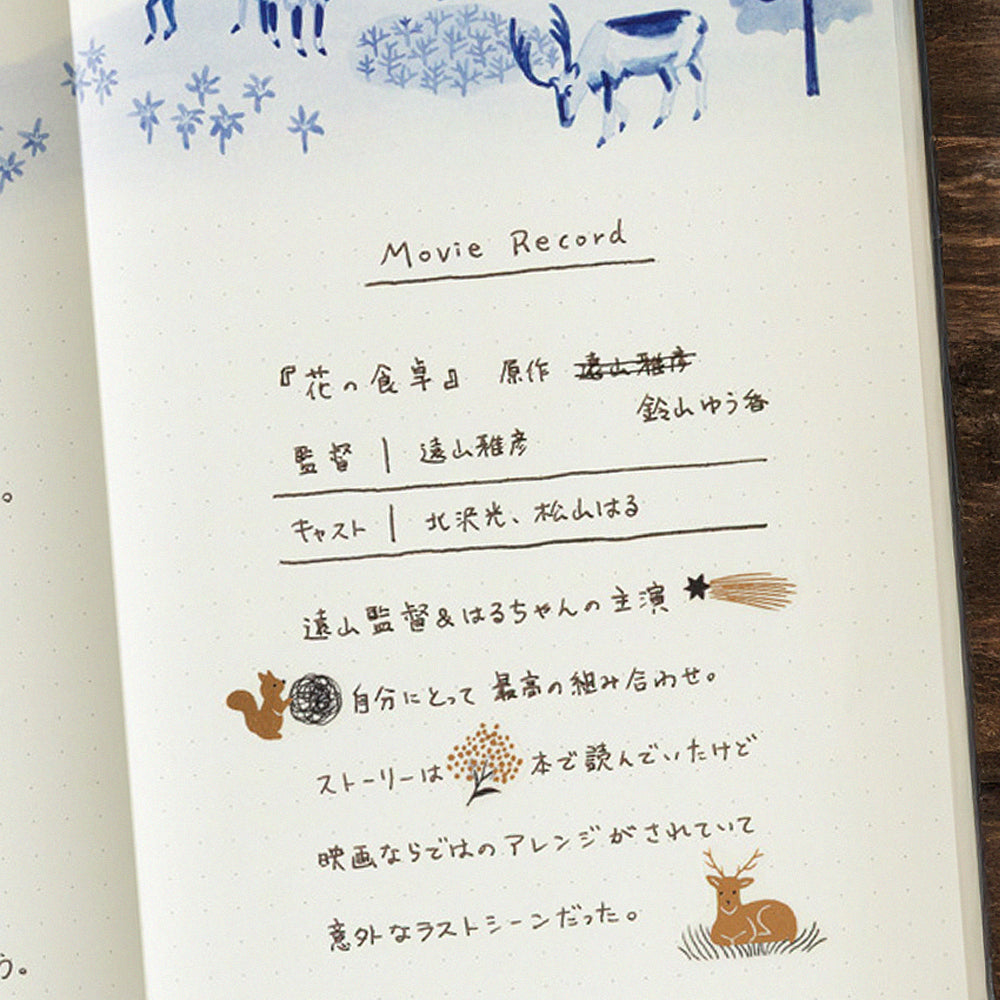 Movie Record
『花の食卓』 原作 遠山雅彦
鈴山ゆう香
監督 | 遠山雅彦
キャスト | 北沢光、松山はる
遠山監督&はるちゃんの主演
自分にとって最高の組み合わせ。
ストーリーは本で読んでいたけど
映画ならではのアレンジがされていて
意外なラストシーンだった。
。
う。